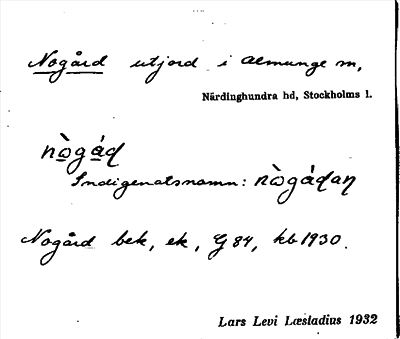 Nogård utjord i Almunge sn,
Närdinghundra hd, Stockholms l.
nògád
Indigenatsnamn: nògádaη
Nogård bek, ek, G 84, kb 1930.
Lars Levi Læstadius 1932